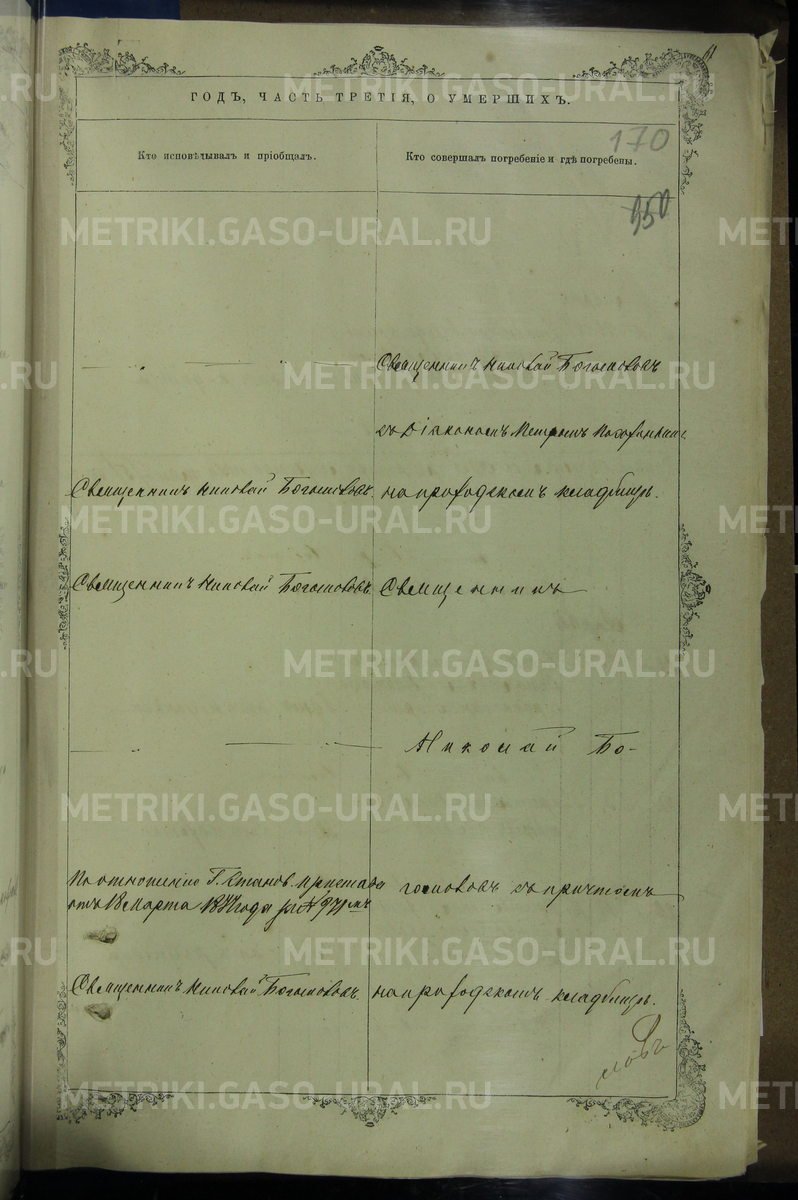 61
ГОДЪ, ЧАСТЬ ТРЕТІЯ, О УМЕРШИХЪ.
170
Кто исповѣдывалъ и пріобщалъ.
Кто совершалъ погребеніе и гдѣ погребены.
350
Священникъ Николай Богословъ
съ Діакономъ Петромъ
Священникъ Николай Богословъ
на приходскомъ кладбищѣ.
Священникъ Николай Богословъ
Священникъ
Николай Бо-
По отношенію Г. Станов. Пристава
гословъ съ причтомъ
отъ 18 Марта года за №
Священникъ Николай Богословъ.
на приходскомъ кладбищѣ.
METRIKI.GASO-URAL.RU